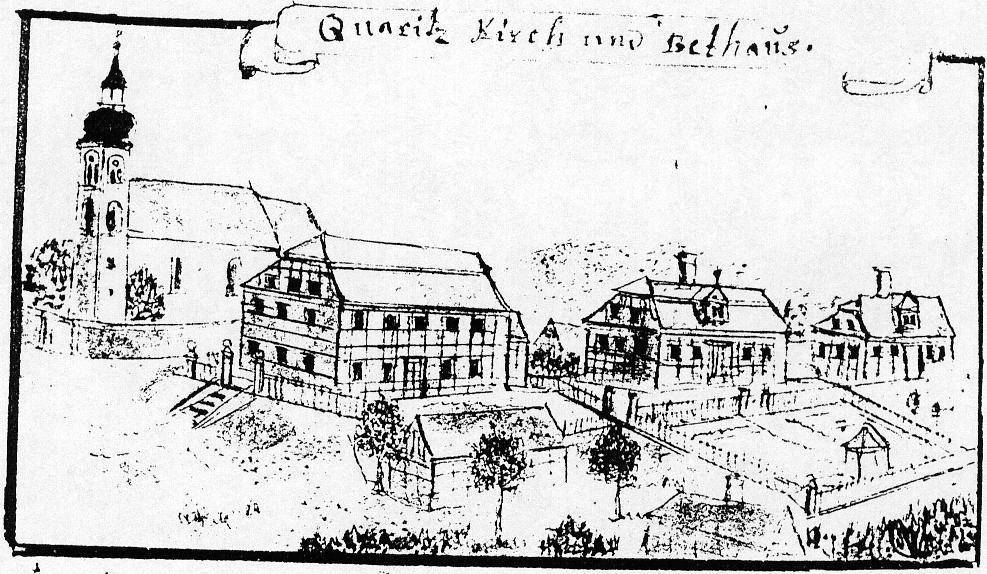 Quaritz Kirch und Bethaus.